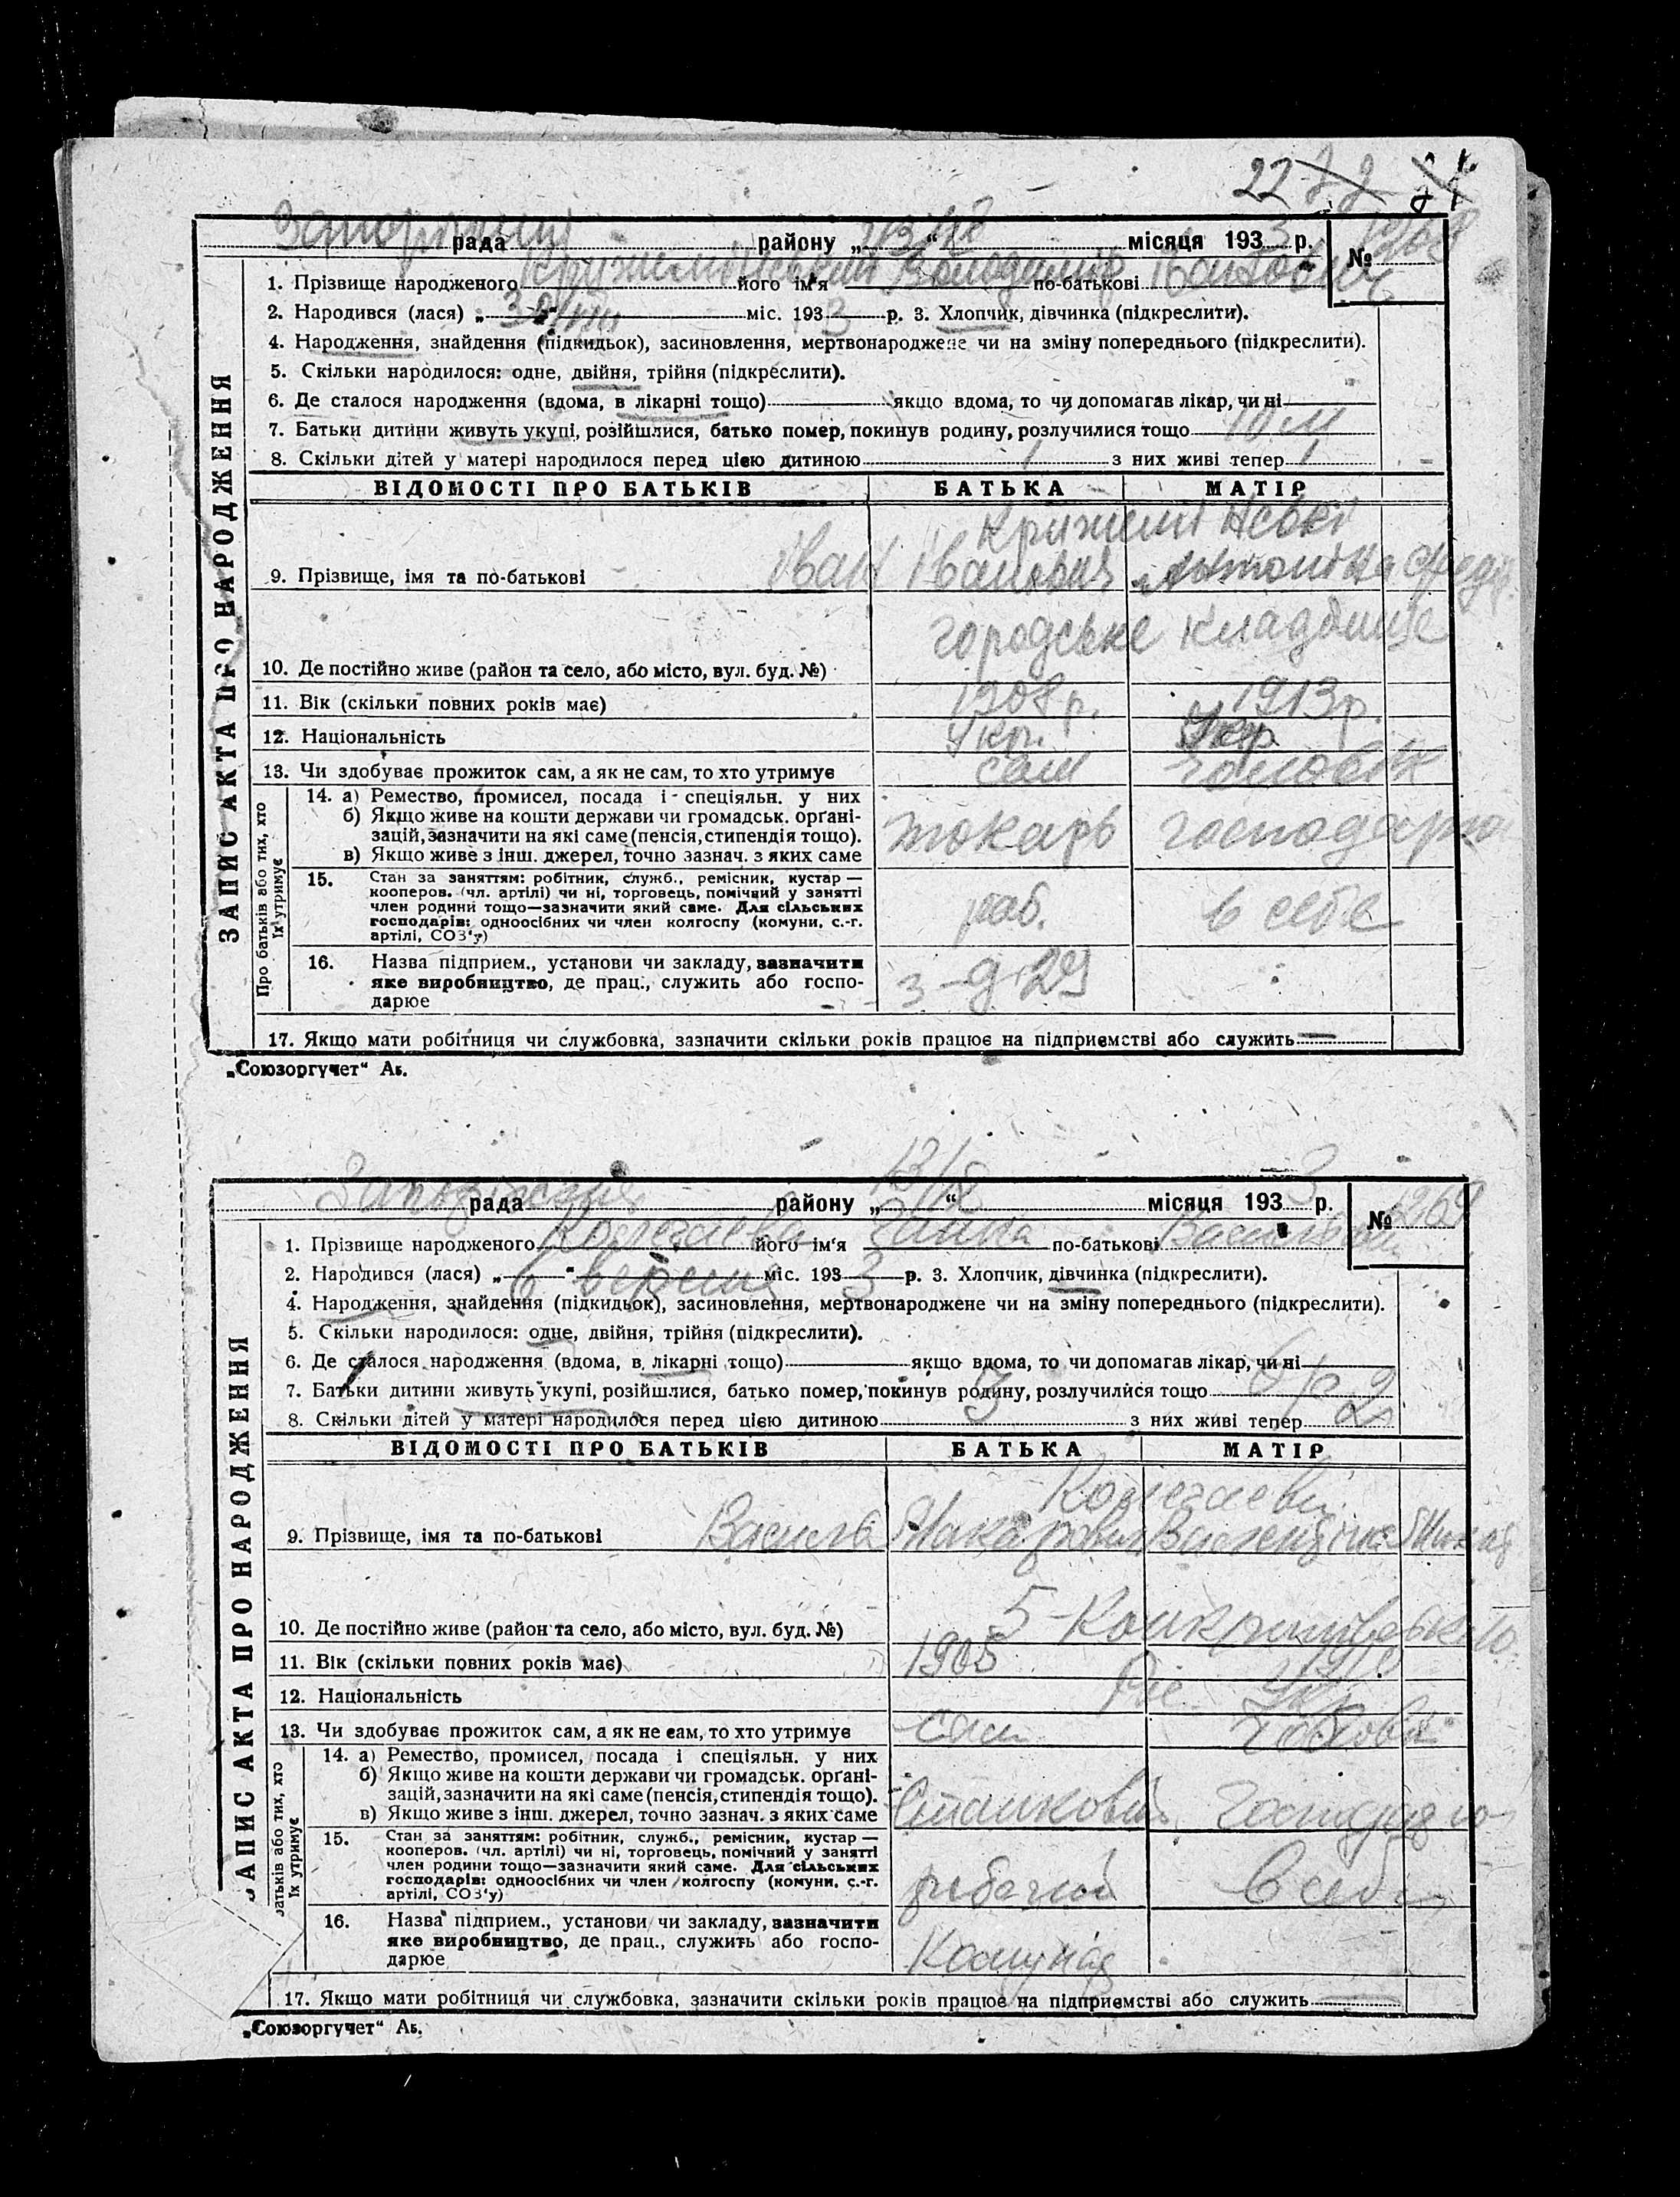 22
рада району „13/IX“ місяця 1933 р. №
1. Прізвище народженого його ім'я Володимир по-батькові Іванович
2. Народився (лася) „ “ міс. 1933 р. 3. Хлопчик, дівчинка (підкреслити).
4. Народження, знайдення (підкидьок), засиновлення, мертвонароджене чи на зміну попереднього (підкреслити).
5. Скільки народилося: одне, двійня, трійня (підкреслити).
6. Де сталося народження (вдома, в лікарні тощо) якщо вдома, то чи допомагав лікар, чи ні
7. Батьки дитини живуть укупі, розійшлися, батько помер, покинув родину, розлучилися тощо
8. Скільки дітей у матері народилося перед цією дитиною 1 з них живі тепер 1
ЗАПИС АКТА ПРО НАРОДЖЕННЯ
ВІДОМОСТІ ПРО БАТЬКІВ БАТЬКА МАТІР
9. Прізвище, імя та по-батькові Іван Іванович Антоніна
городське кладбище
10. Де постійно живе (район та село, або місто, вул. буд. №)
11. Вік (скільки повних років має) 1908 р. 1913 р.
12. Національність Укр. Укр.
13. Чи здобуває прожиток сам, а як не сам, то хто утримує сам чоловік
Про батьків або тих, хто їх утримує
14. а) Ремество, промисел, посада і спеціяльн. у них
б) Якщо живе на кошти держави чи громадськ. орґані-
зацій, зазначити на які саме (пенсія, стипендія тощо).
в) Якщо живе з інш. джерел, точно зазнач. з яких саме
токарь
15. Стан за заняттям: робітник, служб., ремісник, кустар —
кооперов. (чл. артілі) чи ні, торговець, помічний у занятті
член родини тощо—зазначити який саме. Для сільських
господарів: одноосібних чи член колгоспу (комуни, с.-г.
артілі, СОЗ'у)
раб. в себе
16. Назва підприєм., установи чи закладу, зазначити
яке виробництво, де прац., служить або госпо-
дарює
з-д 29
17. Якщо мати робітниця чи службовка, зазначити скільки років працює на підприємстві або служить —
„Союзоргучет“ Аь.
рада району „13/IX“ місяця 1933 р. № 1269
1. Прізвище народженого його ім'я по-батькові
2. Народився (лася) „6“ вересня міс. 1933 р. 3. Хлопчик, дівчинка (підкреслити).
4. Народження, знайдення (підкидьок), засиновлення, мертвонароджене чи на зміну попереднього (підкреслити).
5. Скільки народилося: одне, двійня, трійня (підкреслити).
6. Де сталося народження (вдома, в лікарні тощо) якщо вдома, то чи допомагав лікар, чи ні
7. Батьки дитини живуть укупі, розійшлися, батько помер, покинув родину, розлучилися тощо
8. Скільки дітей у матері народилося перед цією дитиною з них живі тепер 2
ЗАПИС АКТА ПРО НАРОДЖЕННЯ
ВІДОМОСТІ ПРО БАТЬКІВ БАТЬКА МАТІР
9. Прізвище, імя та по-батькові Макарович Валентина
10. Де постійно живе (район та село, або місто, вул. буд. №)
11. Вік (скільки повних років має) 1905
12. Національність Рос. Укр.
13. Чи здобуває прожиток сам, а як не сам, то хто утримує сам чоловік
батьків або тих, хто їх утримує
14. а) Ремество, промисел, посада і спеціяльн. у них
б) Якщо живе на кошти держави чи громадськ. орґані-
зацій, зазначити на які саме (пенсія, стипендія тощо).
в) Якщо живе з інш. джерел, точно зазнач. з яких саме
15. Стан за заняттям: робітник, служб., ремісник, кустар —
кооперов. (чл. артілі) чи ні, торговець, помічний у занятті
член родини тощо—зазначити який саме. Для сільських
господарів: одноосібних чи член колгоспу (комуни, с.-г.
артілі, СОЗ'у)
в себе
16. Назва підприєм., установи чи закладу, зазначити
яке виробництво, де прац., служить або госпо-
дарює
17. Якщо мати робітниця чи службовка, зазначити скільки років працює на підприємстві або служить
„Союзоргучет“ Аь.